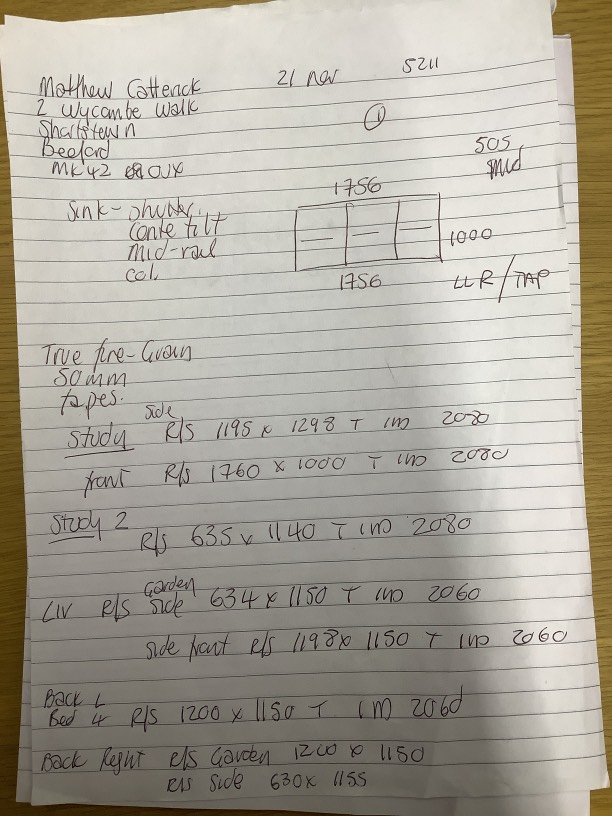 Matthew Catterick 21 nov 5211
2 Wycombe Walk
Shortstown ①
Bedford
MK42 0UX
505
Mid
1756
Sink - shutter.
Conte tilt
Mid-rail
Col.
1000
1756
LLR/TAP
True fire-Grain
50mm
tapes.
side
Study R/S 1195 x 1298 T IN 2080
front R/S 1760 x 1000 T IN 2080
Study 2
R/S 635 x 1140 T IN 2080
Garden
LIV R/S side 634 x 1150 T IN 2060
side front R/S 1198 x 1150 T IN 2060
Back L
Bed 4 R/S 1200 x 1150 T IN 2060
Back Right R/S Garden 1200 x 1150
R/S side 630 x 1155